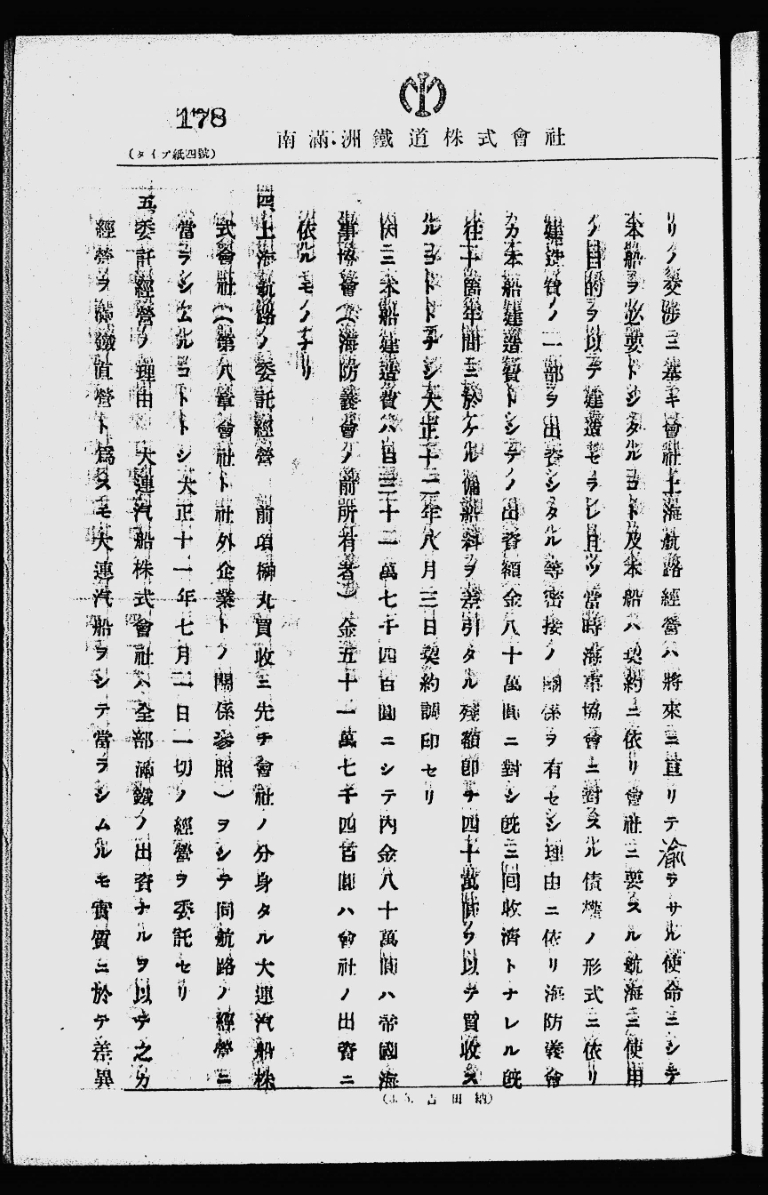 178
南滿洲鐵道株式會社
(タイプ紙四號)
リリノ交渉ニ基キ會社上海航路經營ハ將來ニ亘リテ渝ラサル使命ニシテ
本船ヲ必要トシタルコト及本船ハ契約ニ依リ會社ニ要スル航海ニ使用
ノ目的ヲ以テ建造セラレ且ツ當時海事協會ニ對スル債權ノ形式ニ依リ
建造費ノ一部ヲ出資シタル等密接ノ關係ヲ有セシ理由ニ依リ海防義會
カ本船建造費トシテノ出資額金八十萬圓ニ對シ既ニ回收濟トナレル既
往十箇年間ニ於ケル傭船料ヲ差引タル殘額卽チ四十萬圓ヲ以テ買收ス
ルコトトナシ大正十二年八月三日契約調印セリ
因ニ本船建造費ハ百三十一萬七千四百圓ニシテ內金八十萬圓ハ帝國海
事協會(海防義會ノ前所有者)金五十一萬七千四百圓ハ會社ノ出資ニ
依ルモノナリ
四、上海航路ノ委託經營 前項榊丸買收ニ先チ會社ノ分身タル大連汽船株
式會社(第八章會社ト社外企業トノ關係參照)ヲシテ同航路ノ經營ニ
當ラシムルコトトシ大正十一年七月一日一切ノ經營ヲ委託セリ
五、委託經營ノ理由 大連汽船株式會社ハ全部滿鐵ノ出資ナルヲ以テ之カ
經營ヲ滿鐵直營ト爲スモ大連汽船ヲシテ當ラシムルモ實質ニ於テ差異